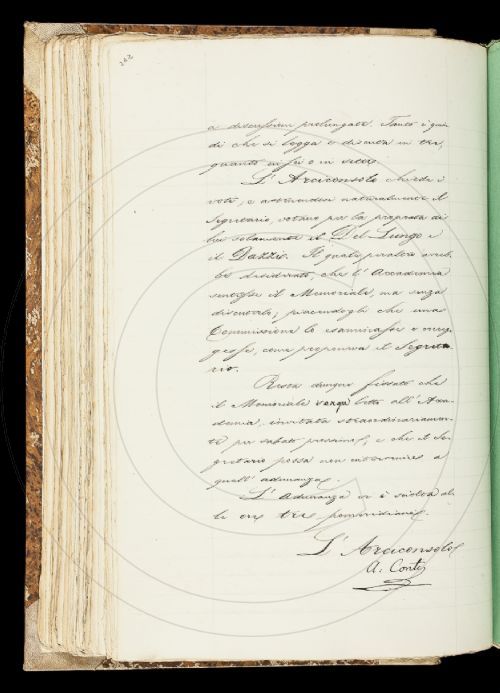 262
a discussioni prolungate. Tanto è quin
di che si legga e discuta in tre,
quanto in sei o in sette.
L'Arciconsolo chiede i
voti, e astenendosi naturalmente il
Segretario, votano per la proposta di
lui solamente il Del Lungo e
il Dazzi. Il quale peraltro avreb
be desiderato, che l'Accademia
sentisse il Memoriale, ma senza
discuterlo; piacendogli che una
Commissione lo esaminasse e correg
gesse, come proponeva il Segreta
rio.
Resta dunque fissato che
il Memoriale venga letto all'Acca-
demia, invitata straordinariamen-
te per sabato prossimo, e che il Se-
gretario possa non intervenire a
quell'adunanza.
L'Adunanza si è sciolta al
le ore tre pomeridiane.
L'Arciconsolo
A: Conti